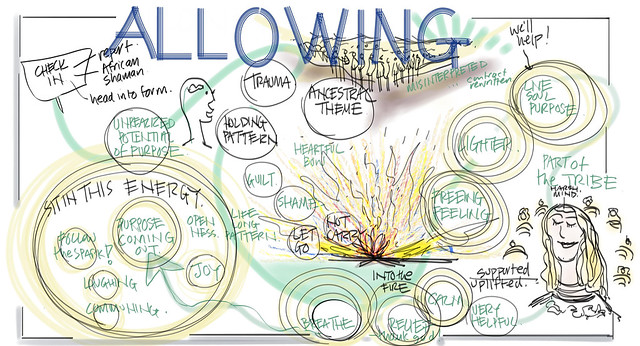 ALLOWING
we'll
help!
CHECK
IN
report
African
shaman
head into form.
TRAUMA
ANCESTRAL
THEME
MISINTERPRETED
... contract
rewritten
LIVE
SOUL
PURPOSE
UNREALIZED
POTENTIAL
OF PURPOSE
HOLDING
PATTERN
HEARTFUL
BOW
LIGHTER
PART of
the TRIBE
HAPPY
MIND
SIT IN THIS ENERGY.
GUILT
SHAME
FREEING
FEELING
FOLLOW
the SPARK!
PURPOSE
COMING
OUT
OPEN
NESS.
LIFE
LONG
PATTERN
LET
GO
NOT
CARRY
JOY
LAUGHING
INTO the
FIRE
supported
uplifted.
CALM
BREATHE
RELIEF
thank god
VERY
HELPFUL